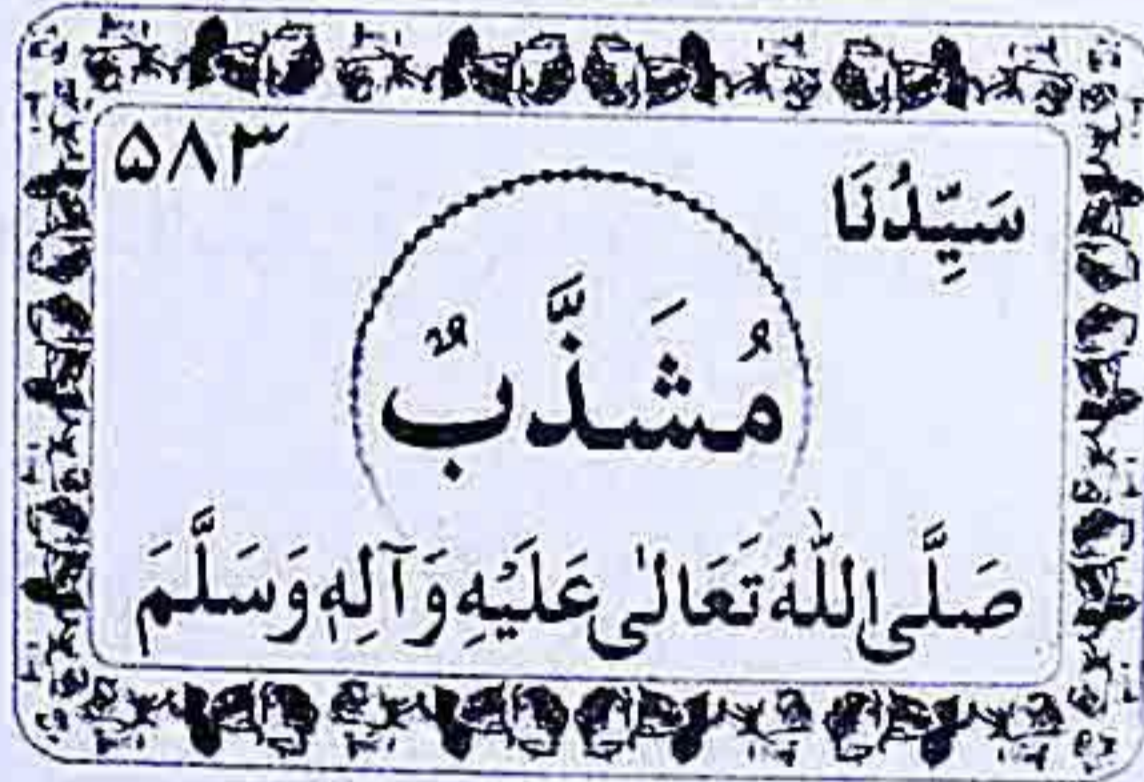 سَيِّدُنَا ۵۸۳
مُشَذَّبٌ
صَلَّى اللّٰهُ تَعَالٰى عَلَيْهِ وَآلِهٖ وَسَلَّمَ